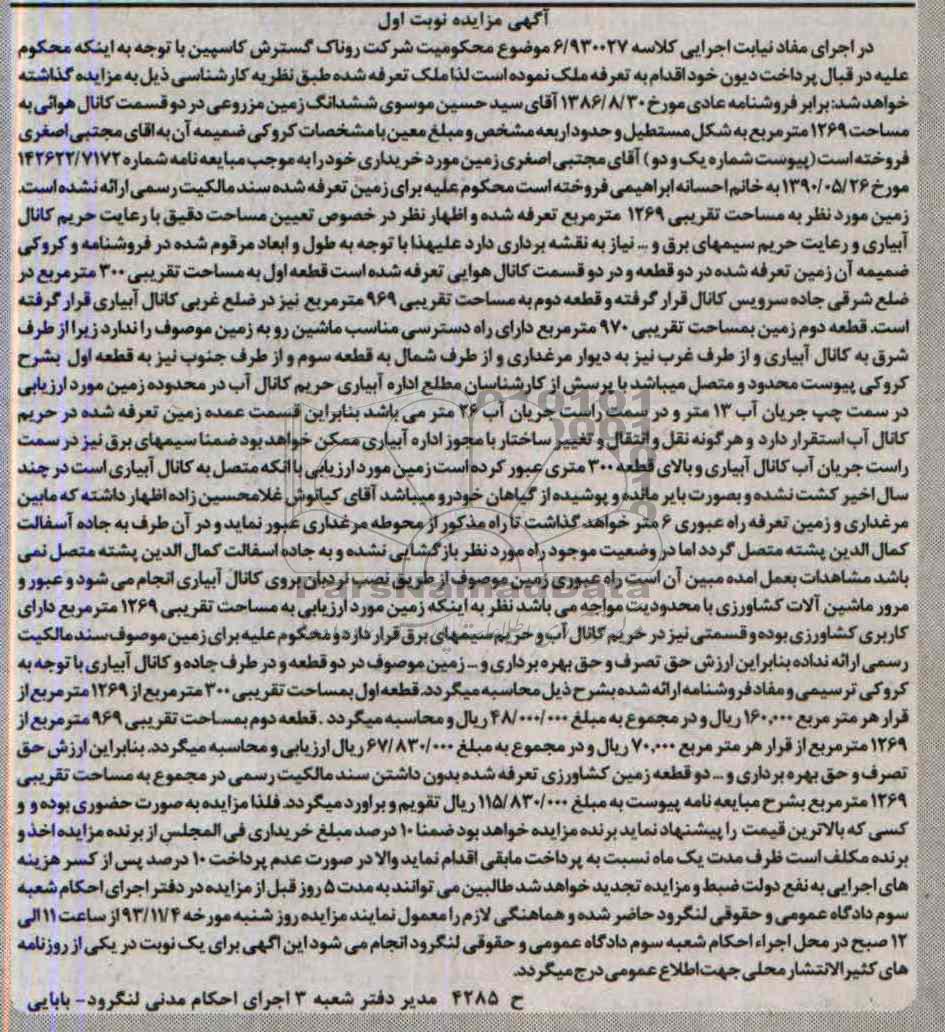 آگهی مزایده نوبت اول
در اجرای مفاد نیابت اجرایی کلاسه ۶/۹۳۰۰۲۷ موضوع محکومیت شرکت روناک گسترش کاسپین با توجه به اینکه محکوم
علیه در قبال پرداخت دیون خود اقدام به تعرفه ملک نموده است لذا ملک تعرفه شده طبق نظریه کارشناسی ذیل به مزایده گذاشته
خواهد شد: برابر فروشنامه عادی مورخ ۱۳۸۶/۸/۳۰ آقای سید حسین موسوی ششدانگ زمین مزروعی در دو قسمت کانال هوائی به
مساحت ۱۲۶۹ متر مربع به شکل مستطیل و حدود اربعه مشخص و مبلغ معین با مشخصات کروکی ضمیمه آن به اقای مجتبی اصغری
فروخته است (پیوست شماره یک و دو) آقای مجتبی اصغری زمین مورد خریداری خود را به موجب مبایعه نامه شماره ۱۴۲۶۲۲/۷۱۷۲
مورخ ۱۳۹۰/۰۵/۲۶ به خانم احسانه ابراهیمی فروخته است محکوم علیه برای زمین تعرفه شده سند مالکیت رسمی ارائه نشده است.
زمین مورد نظر به مساحت تقریبی ۱۲۶۹ مترمربع تعرفه شده و اظهار نظر در خصوص تعیین مساحت دقیق با رعایت حریم کانال
آبیاری و رعایت حریم سیمهای برق و ... نیاز به نقشه برداری دارد علیهذا با توجه به طول و ابعاد مرقوم شده در فروشنامه و کروکی
ضمیمه آن زمین تعرفه شده در دو قطعه و در دو قسمت کانال هوایی تعرفه شده است قطعه اول به مساحت تقریبی ۳۰۰ مترمربع در
ضلع شرقی جاده سرویس کانال قرار گرفته و قطعه دوم به مساحت تقریبی ۹۶۹ مترمربع نیز در ضلع غربی کانال آبیاری قرار گرفته
است. قطعه دوم زمین بمساحت تقریبی ۹۷۰ مترمربع دارای راه دسترسی مناسب ماشین رو به زمین موصوف را ندارد زیرا از طرف
شرق به کانال آبیاری و از طرف غرب نیز به دیوار مرغداری و از طرف شمال به قطعه سوم و از طرف جنوب نیز به قطعه اول بشرح
کروکی پیوست محدود و متصل میباشد با پرسش از کارشناسان مطلع اداره آبیاری حریم کانال آب در محدوده زمین مورد ارزیابی
در سمت چپ جریان آب ۱۳ متر و در سمت راست جریان آب ۲۶ متر می باشد بنابراین قسمت عمده زمین تعرفه شده در حریم
کانال آب استقرار دارد و هر گونه نقل و انتقال و تغییر ساختار با مجوز اداره آبیاری ممکن خواهد بود ضمنا سیمهای برق نیز در سمت
راست جریان آب کانال آبیاری و بالای قطعه ۳۰۰ متری عبور کرده است زمین مورد ارزیابی با انکه متصل به کانال آبیاری است در چند
سال اخیر کشت نشده و بصورت بایر مانده و پوشیده از گیاهان خودرو میباشد آقای کیانوش غلامحسین زاده اظهار داشته که مابین
مرغداری و زمین تعرفه راه عبوری ۶ متر خواهد گذاشت تا راه مذکور از محوطه مرغداری عبور نماید و در آن طرف به جاده آسفالت
کمال الدین پشته متصل گردد اما در وضعیت موجود راه مورد نظر بازگشایی نشده و به جاده اسفالت کمال الدین پشته متصل نمی
باشد مشاهدات بعمل امده مبین آن است راه عبوری زمین موصوف از طریق نصب نردبان بروی کانال آبیاری انجام می شود و عبور و
مرور ماشین آلات کشاورزی با محدودیت مواجه می باشد نظر به اینکه زمین مورد ارزیابی به مساحت تقریبی ۱۲۶۹ مترمربع دارای
کاربری کشاورزی بوده و قسمتی نیز در حریم کانال آب و حریم سیمهای برق قرار دارد و محکوم علیه برای زمین موصوف سند مالکیت
رسمی ارائه نداده بنابراین ارزش حق تصرف و حق بهره برداری و ... زمین موصوف در دو قطعه و در طرف جاده و کانال آبیاری با توجه به
کروکی ترسیمی و مفاد فروشنامه ارائه شده بشرح ذیل محاسبه میگردد. قطعه اول بمساحت تقریبی ۳۰۰ مترمربع از ۱۲۶۹ متر مربع از
قرار هر متر مربع ۱۶۰,۰۰۰ ریال و در مجموع به مبلغ ۴۸/۰۰۰/۰۰۰ ریال و محاسبه میگردد . قطعه دوم بمساحت تقریبی ۹۶۹ مترمربع از
۱۲۶۹ مترمربع از قرار هر متر مربع ۷۰,۰۰۰ ریال و در مجموع به مبلغ ۶۷/۸۳۰/۰۰۰ ریال ارزیابی و محاسبه میگردد. بنابراین ارزش حق
تصرف و حق بهره برداری و ... دو قطعه زمین کشاورزی تعرفه شده بدون داشتن سند مالکیت رسمی در مجموع به مساحت تقریبی
۱۲۶۹ متر مربع بشرح مبایعه نامه پیوست به مبلغ ۱۱۵/۸۳۰/۰۰۰ ریال تقویم و براورد میگردد. فلذا مزایده به صورت حضوری بوده و و
کسی که بالاترین قیمت را پیشنهاد نماید برنده مزایده خواهد بود ضمنا ۱۰ درصد مبلغ خریداری فی المجلس از برنده مزایده اخذ و
برنده مکلف است ظرف مدت یک ماه نسبت به پرداخت مابقی اقدام نماید والا در صورت عدم پرداخت ۱۰ درصد پس از کسر هزینه
های اجرایی به نفع دولت ضبط و مزایده تجدید خواهد شد طالبین می توانند به مدت ۵ روز قبل از مزایده در دفتر اجرای احکام شعبه
سوم دادگاه عمومی و حقوقی لنگرود حاضر شده و هماهنگی لازم را معمول نمایند مزایده روز شنبه مورخه ۹۳/۱۱/۴ از ساعت ۱۱ الی
۱۲ صبح در محل اجراء احکام شعبه سوم دادگاه عمومی و حقوقی لنگرود انجام می شود این اگهی برای یک نوبت در یکی از روزنامه
های کثیرالانتشار محلی جهت اطلاع عمومی درج میگردد.
ح ۴۲۸۵ مدیر دفتر شعبه ۳ اجرای احکام مدنی لنگرود- بابایی
ParsNamadData